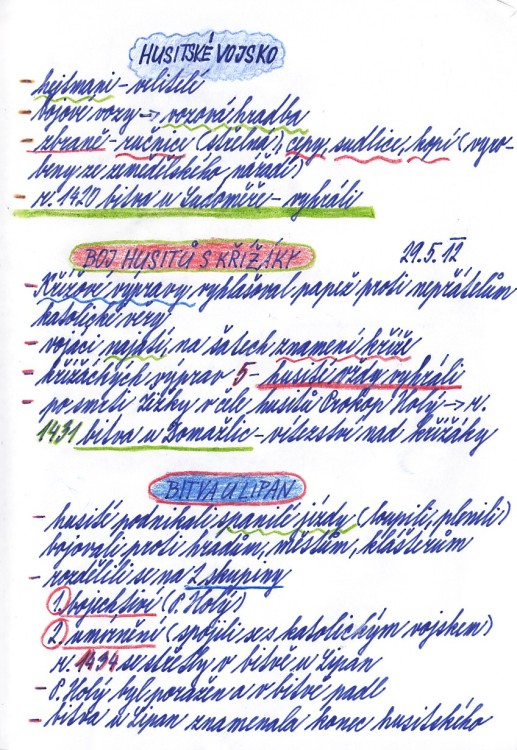 HUSITSKÉ VOJSKO
- hejtmani - velitelé
- bojové vozy → vozová hradba
- zbraně - ručnice (střelná) cepy, sudlice, kopí (vyro-
beny ze zemědělského nářadí)
- r. 1420 bitva u Sudoměře - vyhráli
BOJ HUSITŮ S KŘIŽÁKY 29.5.12
- Křížové výpravy vyhlašoval papež proti nepřátelům
katolické very
- vojáci najatí, na šatech znamení kříže
- křižáckých vyprav 5 - husité vždy vyhráli
- po smrti Žižky v čele husitů Prokop Holý → r.
1431 bitva u Domažlic - vítezství nad křižáky
BITVA U LIPAN
- husité podnikali spanilé jízdy (loupili, plenili)
bojovali proti hradům, městům, klášterům
- rozdělili se na 2 skupiny
1. bojechtiví (P. Holý)
2. umírnění (spojili se s katolickým vojskem)
r. 1434 se střetly v bitvě u Lipan
- P. Holý byl poražen a v bitvě padl
- bitva u Lipan znamenala konec husitského